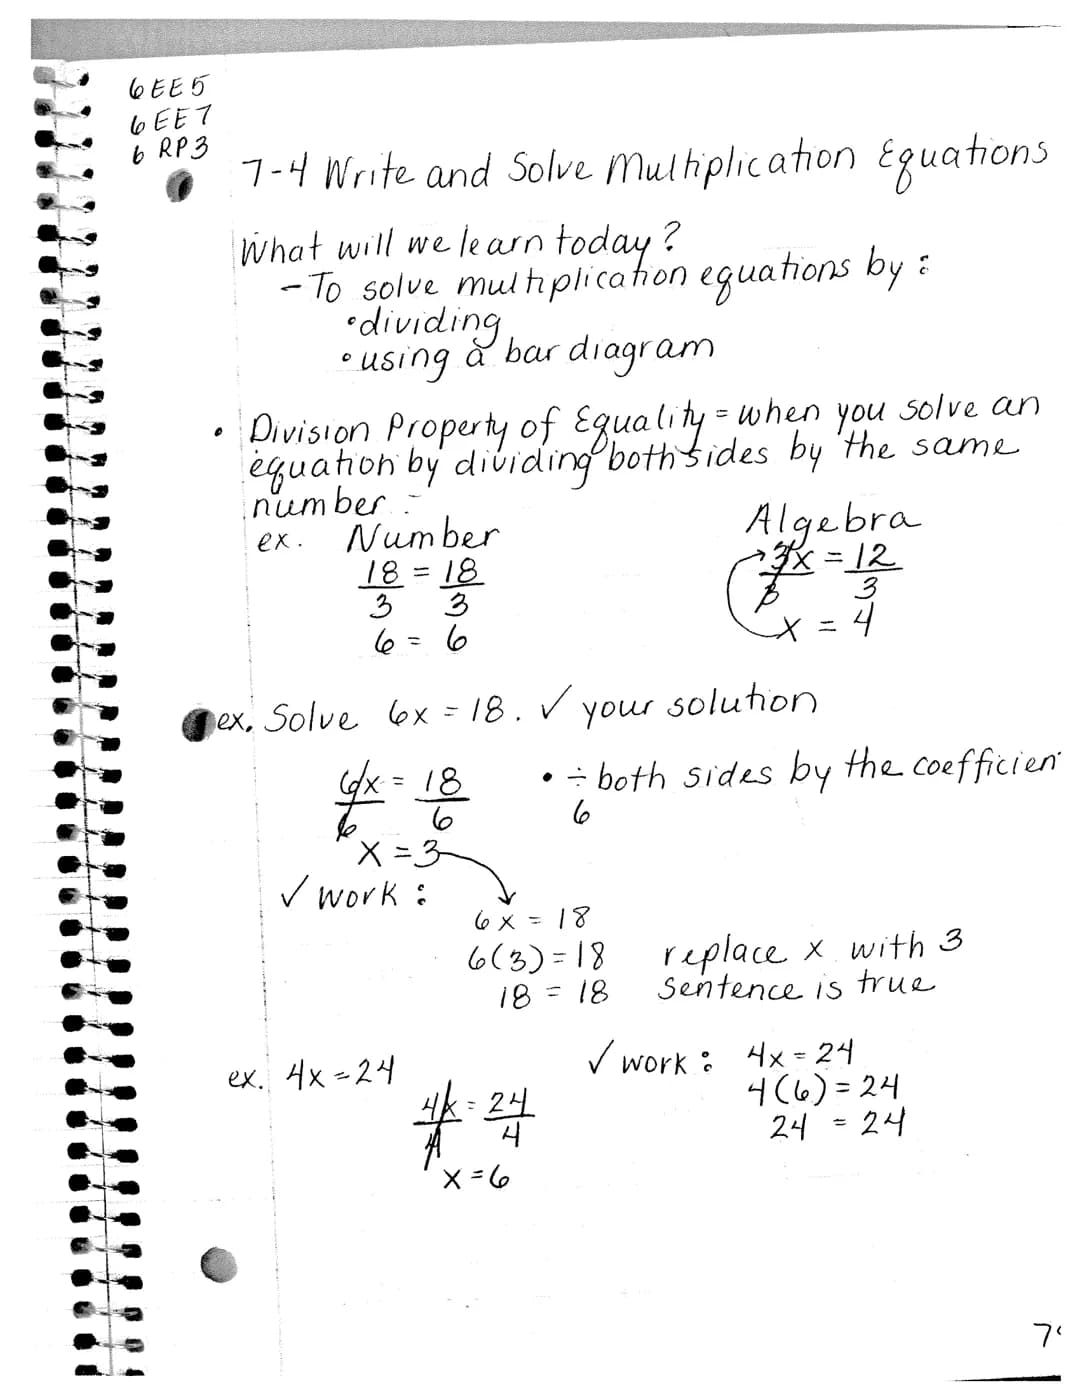 6EE5
6EE7
6 RP3
7-4 Write and Solve Multiplication Equations
What will we learn today?
- To solve multiplication equations by:
• dividing
• using a bar diagram
• Division Property of Equality = when you solve an
equation by dividing both sides by the same
number.
ex. Number Algebra
18 = 18 3x = 12
3 3 3 3
6 = 6 x = 4
ex. Solve 6x = 18. ✓ your solution
6x = 18 • ÷ both sides by the coefficien
6 6 6
x = 3
✓ work:
6x = 18
6(3) = 18 replace x with 3
18 = 18 sentence is true
ex. 4x = 24 ✓ work: 4x = 24
4x = 24 4(6) = 24
4 4 24 = 24
x = 6